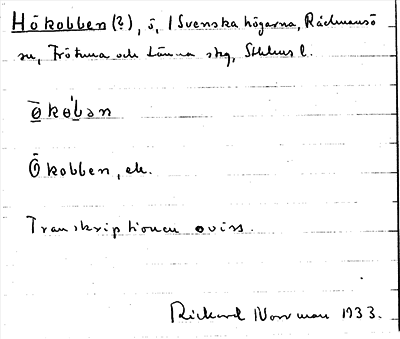 Hökobben (?), ö, i Svenska högarna, Rådmansö
sn, Frötuna och Länna skg, Sthlms l.
ø̄kob̍ən
Ökobben, ek.
Transkriptionen oviss.
Rickard Norrman 1933.